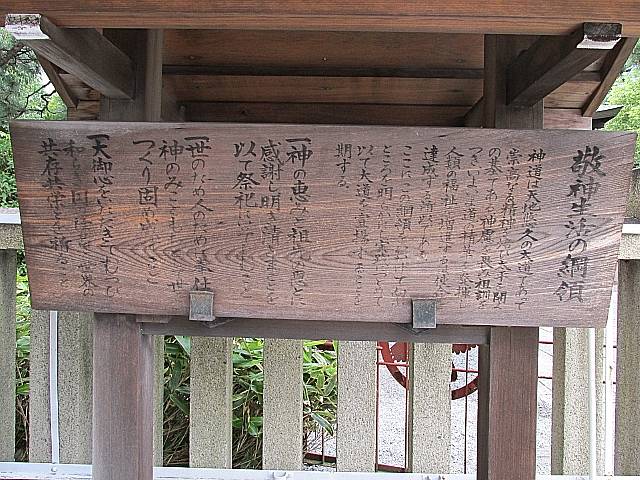 敬神生活の綱領
神道は天地悠久の大道であつて
崇高なる精神を培ひ太平を開く
の基である 神慮を畏み祖訓を
つぎいよいよ道の精華を発揮し
人類の福祉を増進するは使命を
達成する所以である
ここにこの綱領をかかげて向ふ
ところを明らかにし実践につとめ
以て大道を宣揚することを
期する
一神の恵みと祖先の恩とに
感謝し明き清きまことを
以て祭祀にいそしむこと
一世のため人のために奉仕し
神のみこともちとして世を
つくり固め成すこと
一大御心をいただきてむつび
和らぎ国の隆昌と世界の
共存共栄とを祈ること